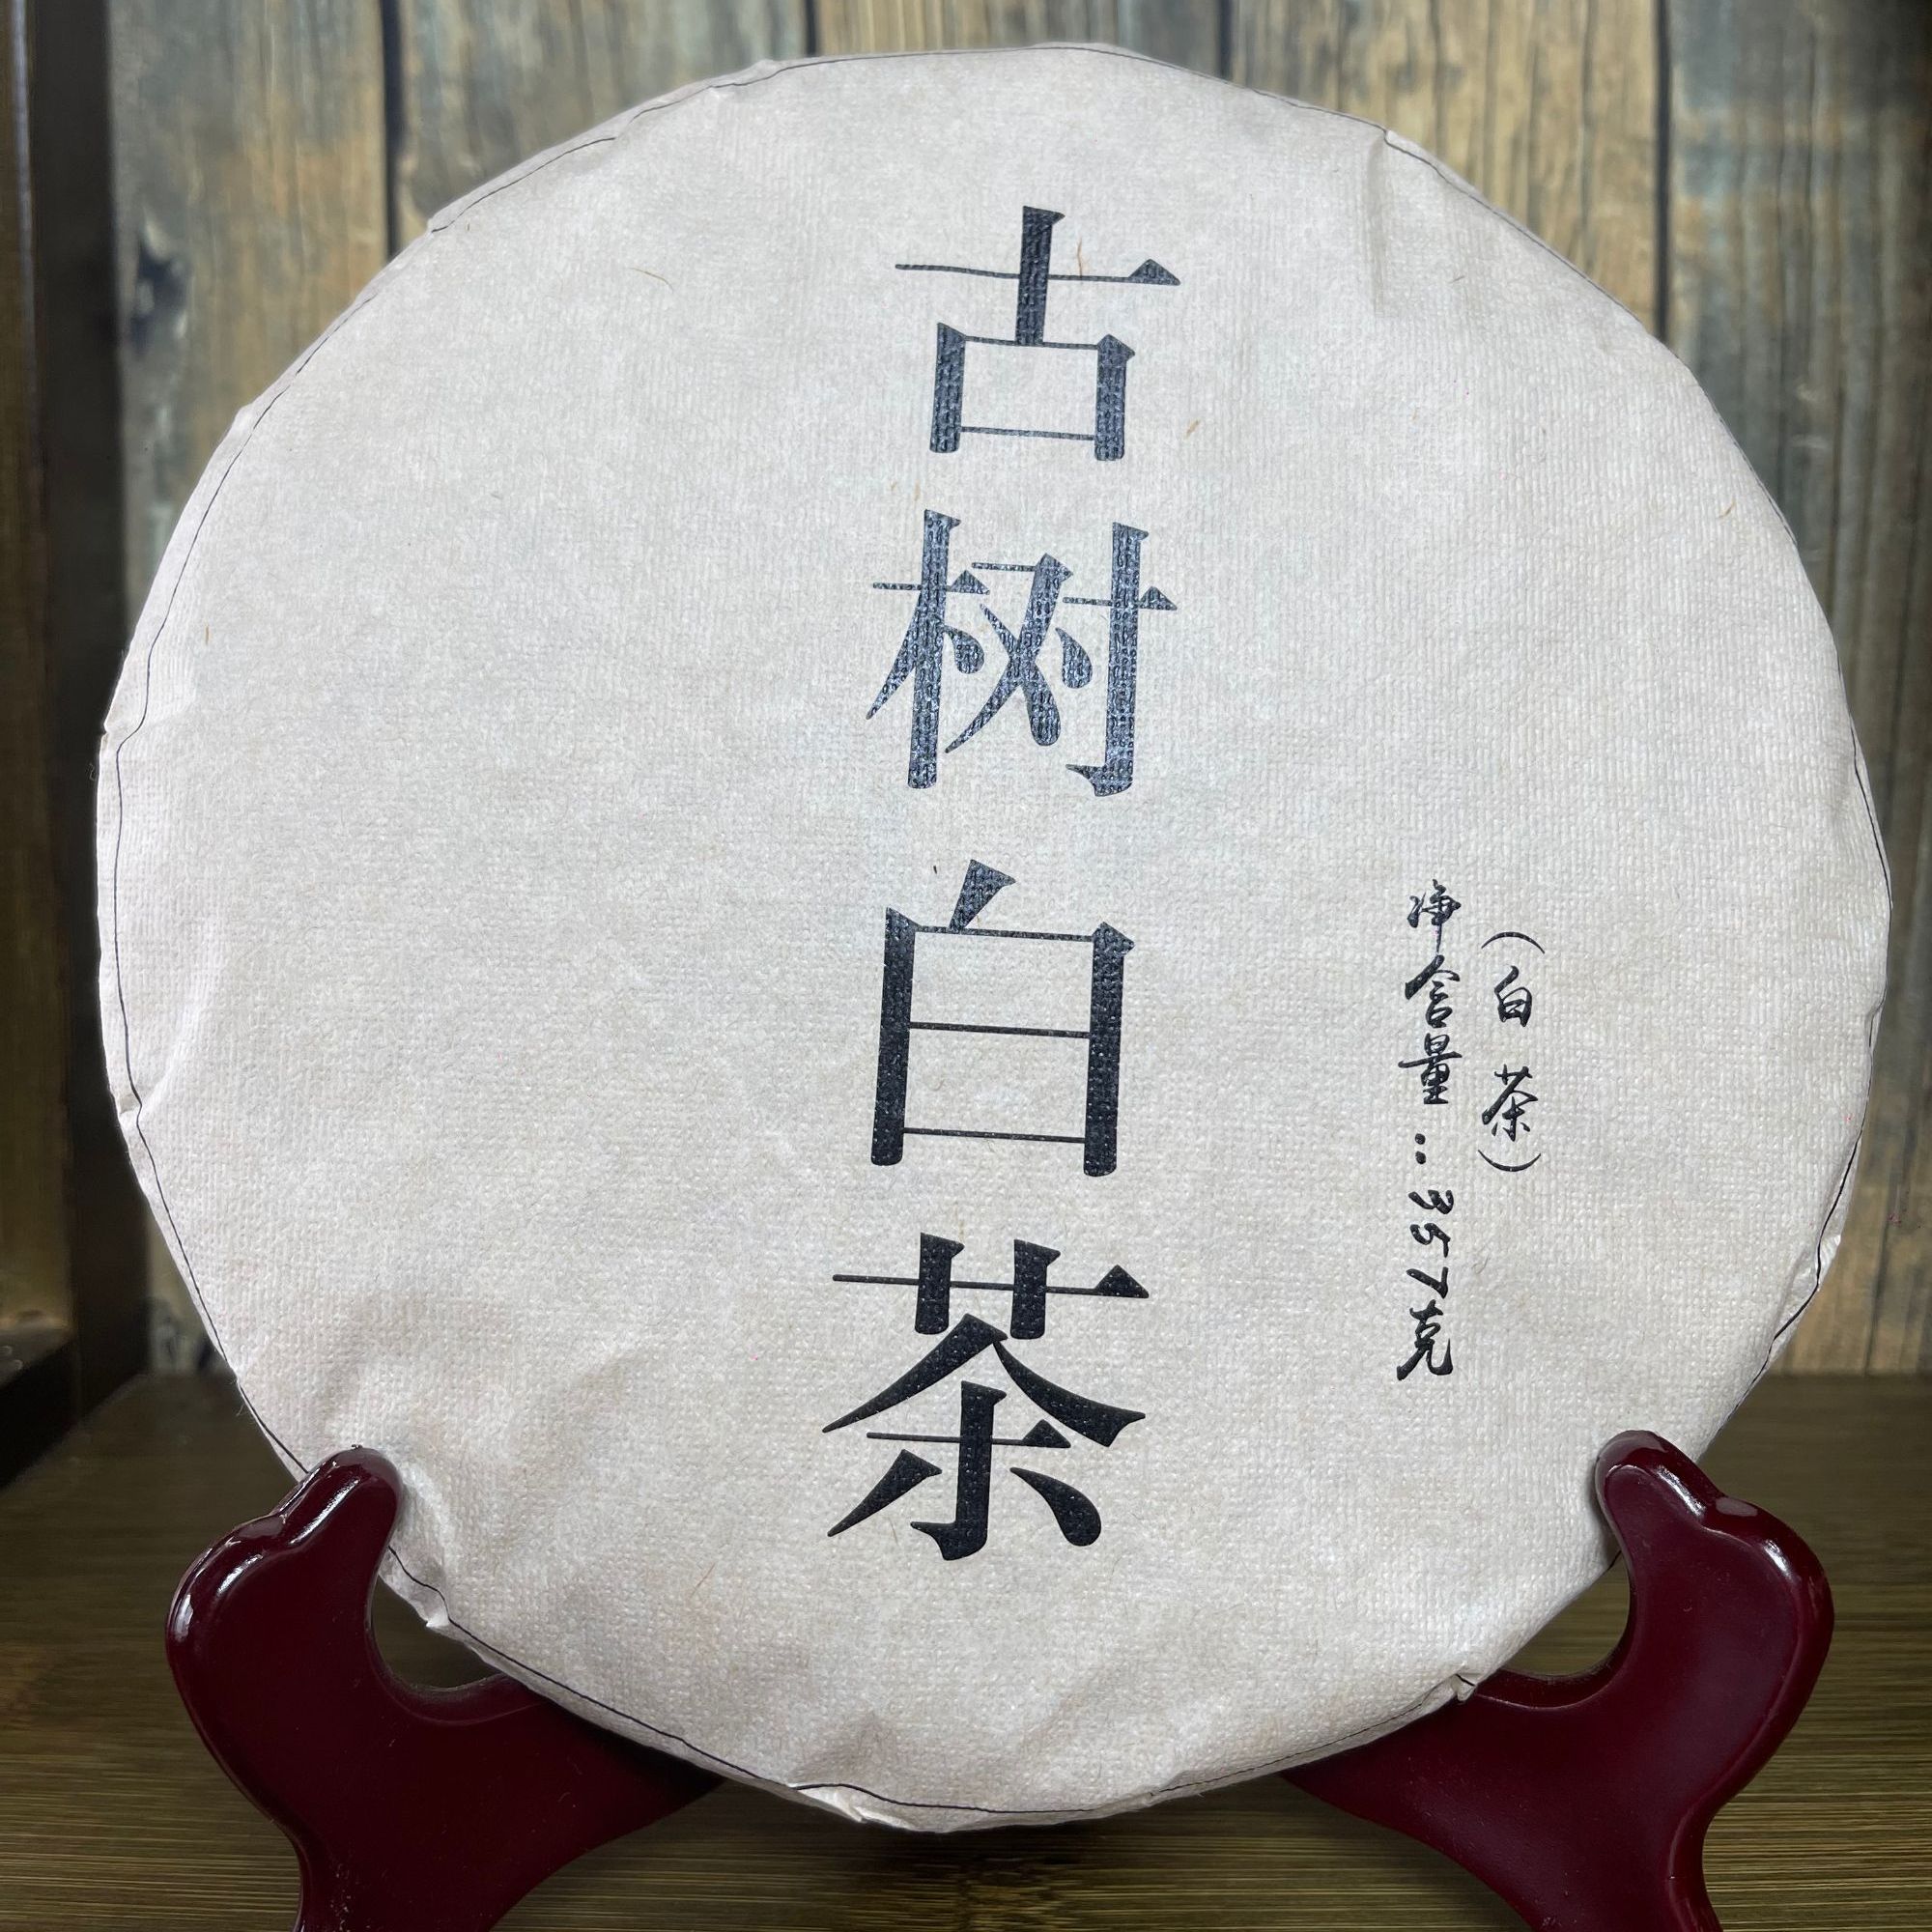 古树白茶
（白茶）
净含量：357克